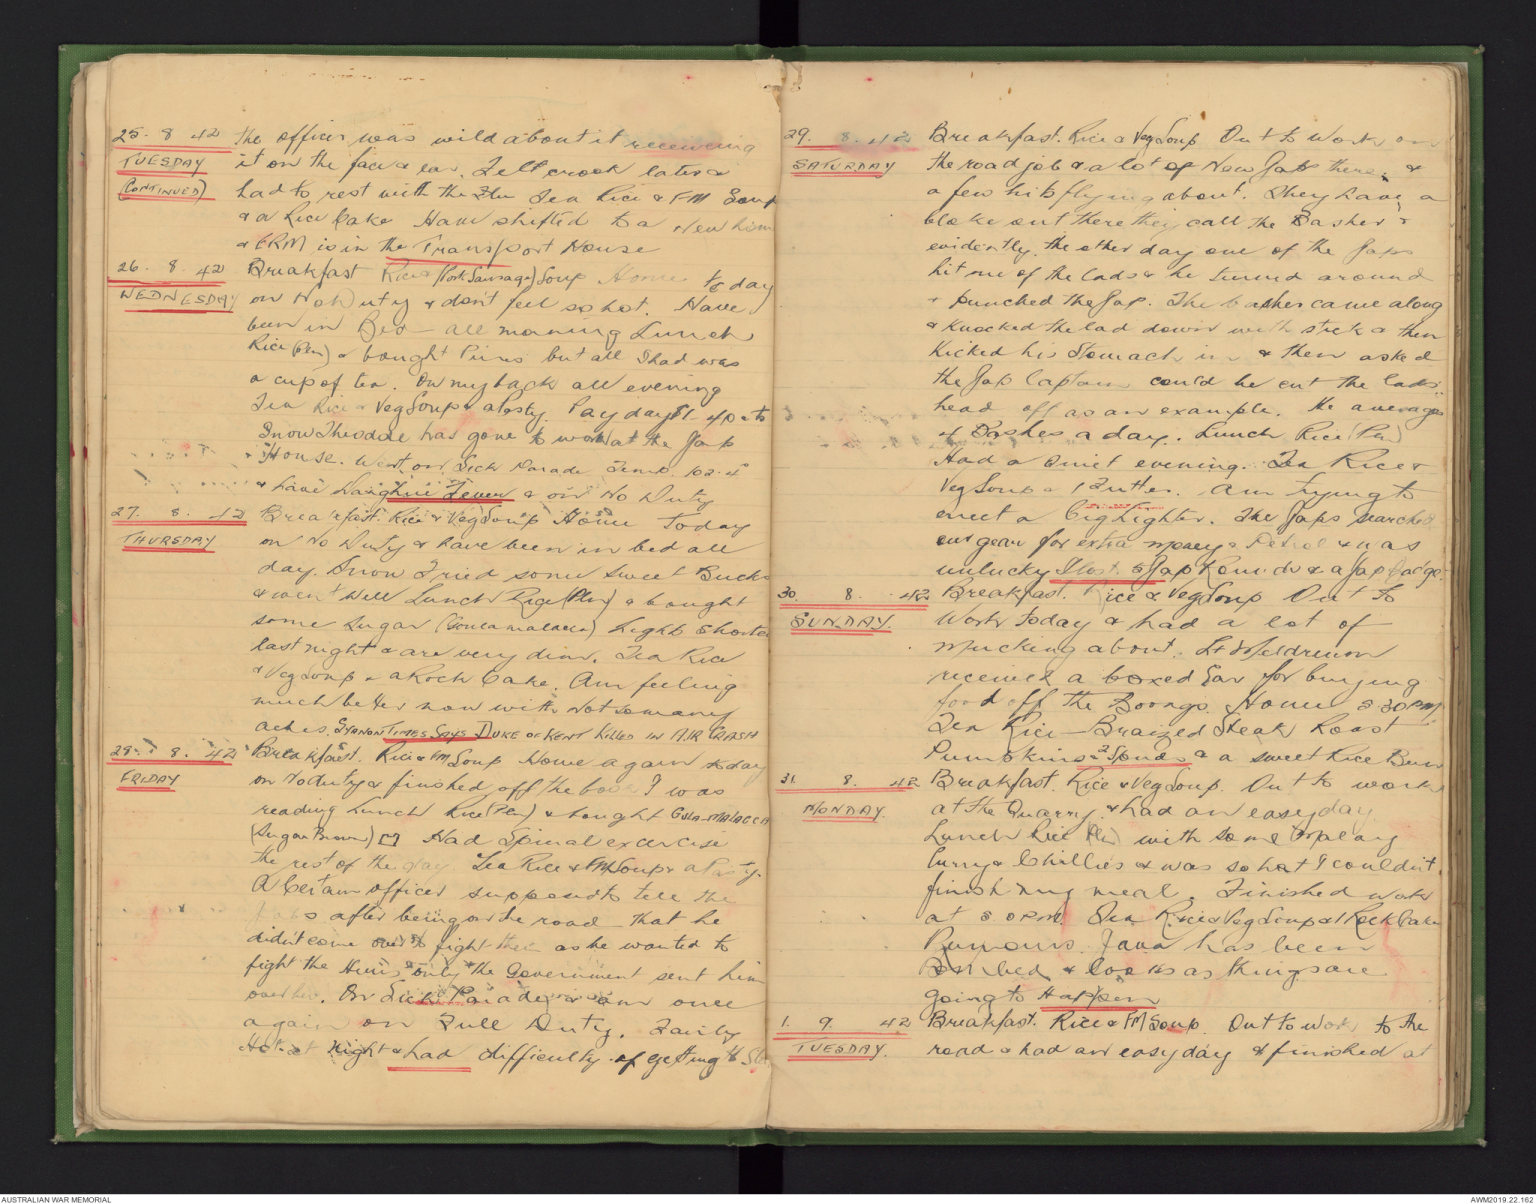 25. 8 42 the officer was wild about it receiving
TUESDAY it on the face & ear. Felt crook later &
(CONTINUED) had to rest with the Flu Tea Rice & FM Soup
& a Rice Cake Have shifted to a New
& ERM is in the Transport House
26. 8. 42 Breakfast Rice & (Pork Sausage) Soup Home today
WEDNESDAY on No Duty & don't feel so hot. Have
been in Bed all morning Lunch
Rice (Pln) & bought Pines but all I had was
a cup of tea. On my back all evening
Tea Rice & Veg Soup & a Pasty Pay day $1. 40 cts
Snow Theodore has gone to work at the Jap
House. Went on Sick Parade Temp 102.4°
& have Fever & on No Duty
27. 8. 42 Breakfast. Rice & Veg Soup Home Today
THURSDAY on No Duty & have been in bed all
day. Snow Fried some Sweet Bucks
& went Well Lunch Rice (Pln) & bought
some Sugar (Goulamalacca) Lights Shorted
last night & are very dim. Tea Rice
& Veg Soup & a Rock Cake. Am feeling
much better now with not so many
aches. SYONON TIMES SAYS DUKE OF KENT KILLED IN AIR CRASH
28. 8. 42 Breakfast. Rice & FM Soup Home again today
FRIDAY on No Duty & finished off the book I was
reading Lunch Rice (Pln) & bought GULA-MALACCA
(Sugar Brown) Had Spinal excercise
the rest of the day Tea Rice & FM Soup & a Pasty.
A Certain officer supposed to tell the
Japs after being on the road that he
didn't come over to fight them as he wanted to
fight the Huns only the Government sent him
over here. On Sick Parade & am once
again on Full Duty. Fairly
Hot at Night & had difficulty of getting to
29. 8. 42 Breakfast. Rice & Veg Soup Out to Work on
SATURDAY the road job & a lot of New Japs there &
a few hits flying about. They have a
bloke out there they call the Basher &
evidently the other day one of the Japs
hit one of the lads & he turned around
& punched the Jap. The basher came along
& Knocked the lad down with stick & then
Kicked his Stomach in & then asked
the Jap Captain could he cut the lads
head off as an example. He averages
4 Bashes a day. Lunch Rice (Pln)
Had a Quiet evening. Tea Rice &
Veg Soup & 1 Rutter. Am trying to
erect a Cig Lighter. The Japs searched
our gear for extra money & Petrol & was
unlucky I lost 5 Jap &  a Jap
30. 8. 42 Breakfast. Rice & Veg Soup Out to
SUNDAY. Work today & had a lot of
mucking about. Lt Meldrum
received a boxed Ear for buying
food off the Boongs. Home 3 30 PM
Tea Rice — Braized Steak Roast
Pumpkins 2 Spuds & a sweet Rice Bun
31. 8. 42 Breakfast. Rice & Veg Soup. Out to work
MONDAY. at the Quarry & had an easy day
Lunch Rice (Pln) with some Malay
Curry & Chillies & was so hot I couldn't
finish my meal. Finished work
at 5.0 PM. Tea Rice & Veg Soup & 1 Rock Cake
Rumours Java has been
Bombed & looks as things are
going to Happen
1. 9. 42 Breakfast. Rice & FM Soup. Out to Work to the
TUESDAY. road & had an easy day & finished at
AUSTRALIAN WAR MEMORIAL
AWM2019.22.162